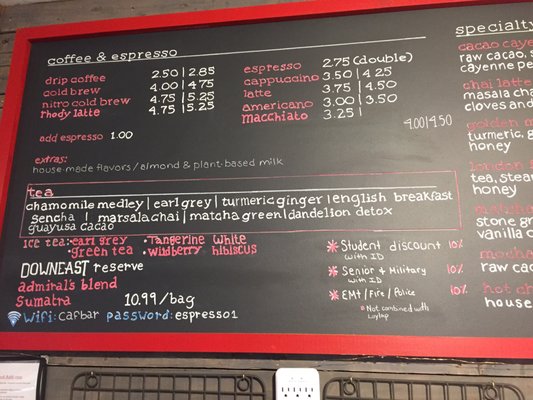 coffee & espresso
drip coffee 2.50 | 2.85
cold brew 4.00 | 4.75
nitro cold brew 4.75 | 5.25
rhody latte 4.75 | 5.25
add espresso 1.00
espresso 2.75 (double)
cappuccino 3.50 | 4.25
latte 3.75 | 4.50
americano 3.00 | 3.50
macchiato 3.25 |
4.00 | 4.50
extras:
house-made flavors / almond & plant-based milk
tea
chamomile medley | earl grey | turmeric ginger | english breakfast
sencha | marsala chai | matcha green | dandelion detox
guayusa cacao
ice tea: • earl grey • Tangerine White
• green tea • wildberry hibiscus
DOWNEAST reserve
admiral's blend
Sumatra 10.99/bag
Wifi: cafbar password: espresso1
* Student discount 10%
with ID
* Senior & Military 10%
with ID
* EMT / Fire / Police 10%
* Not combined with
specialty
cacao caye
raw cacao, s
cayenne pe
chai latte
masala cha
cloves and
golden
turmeric, g
honey
london
tea, steam
honey
matcha
stone gr
vanilla c
mocha
raw cac
hot ch
house